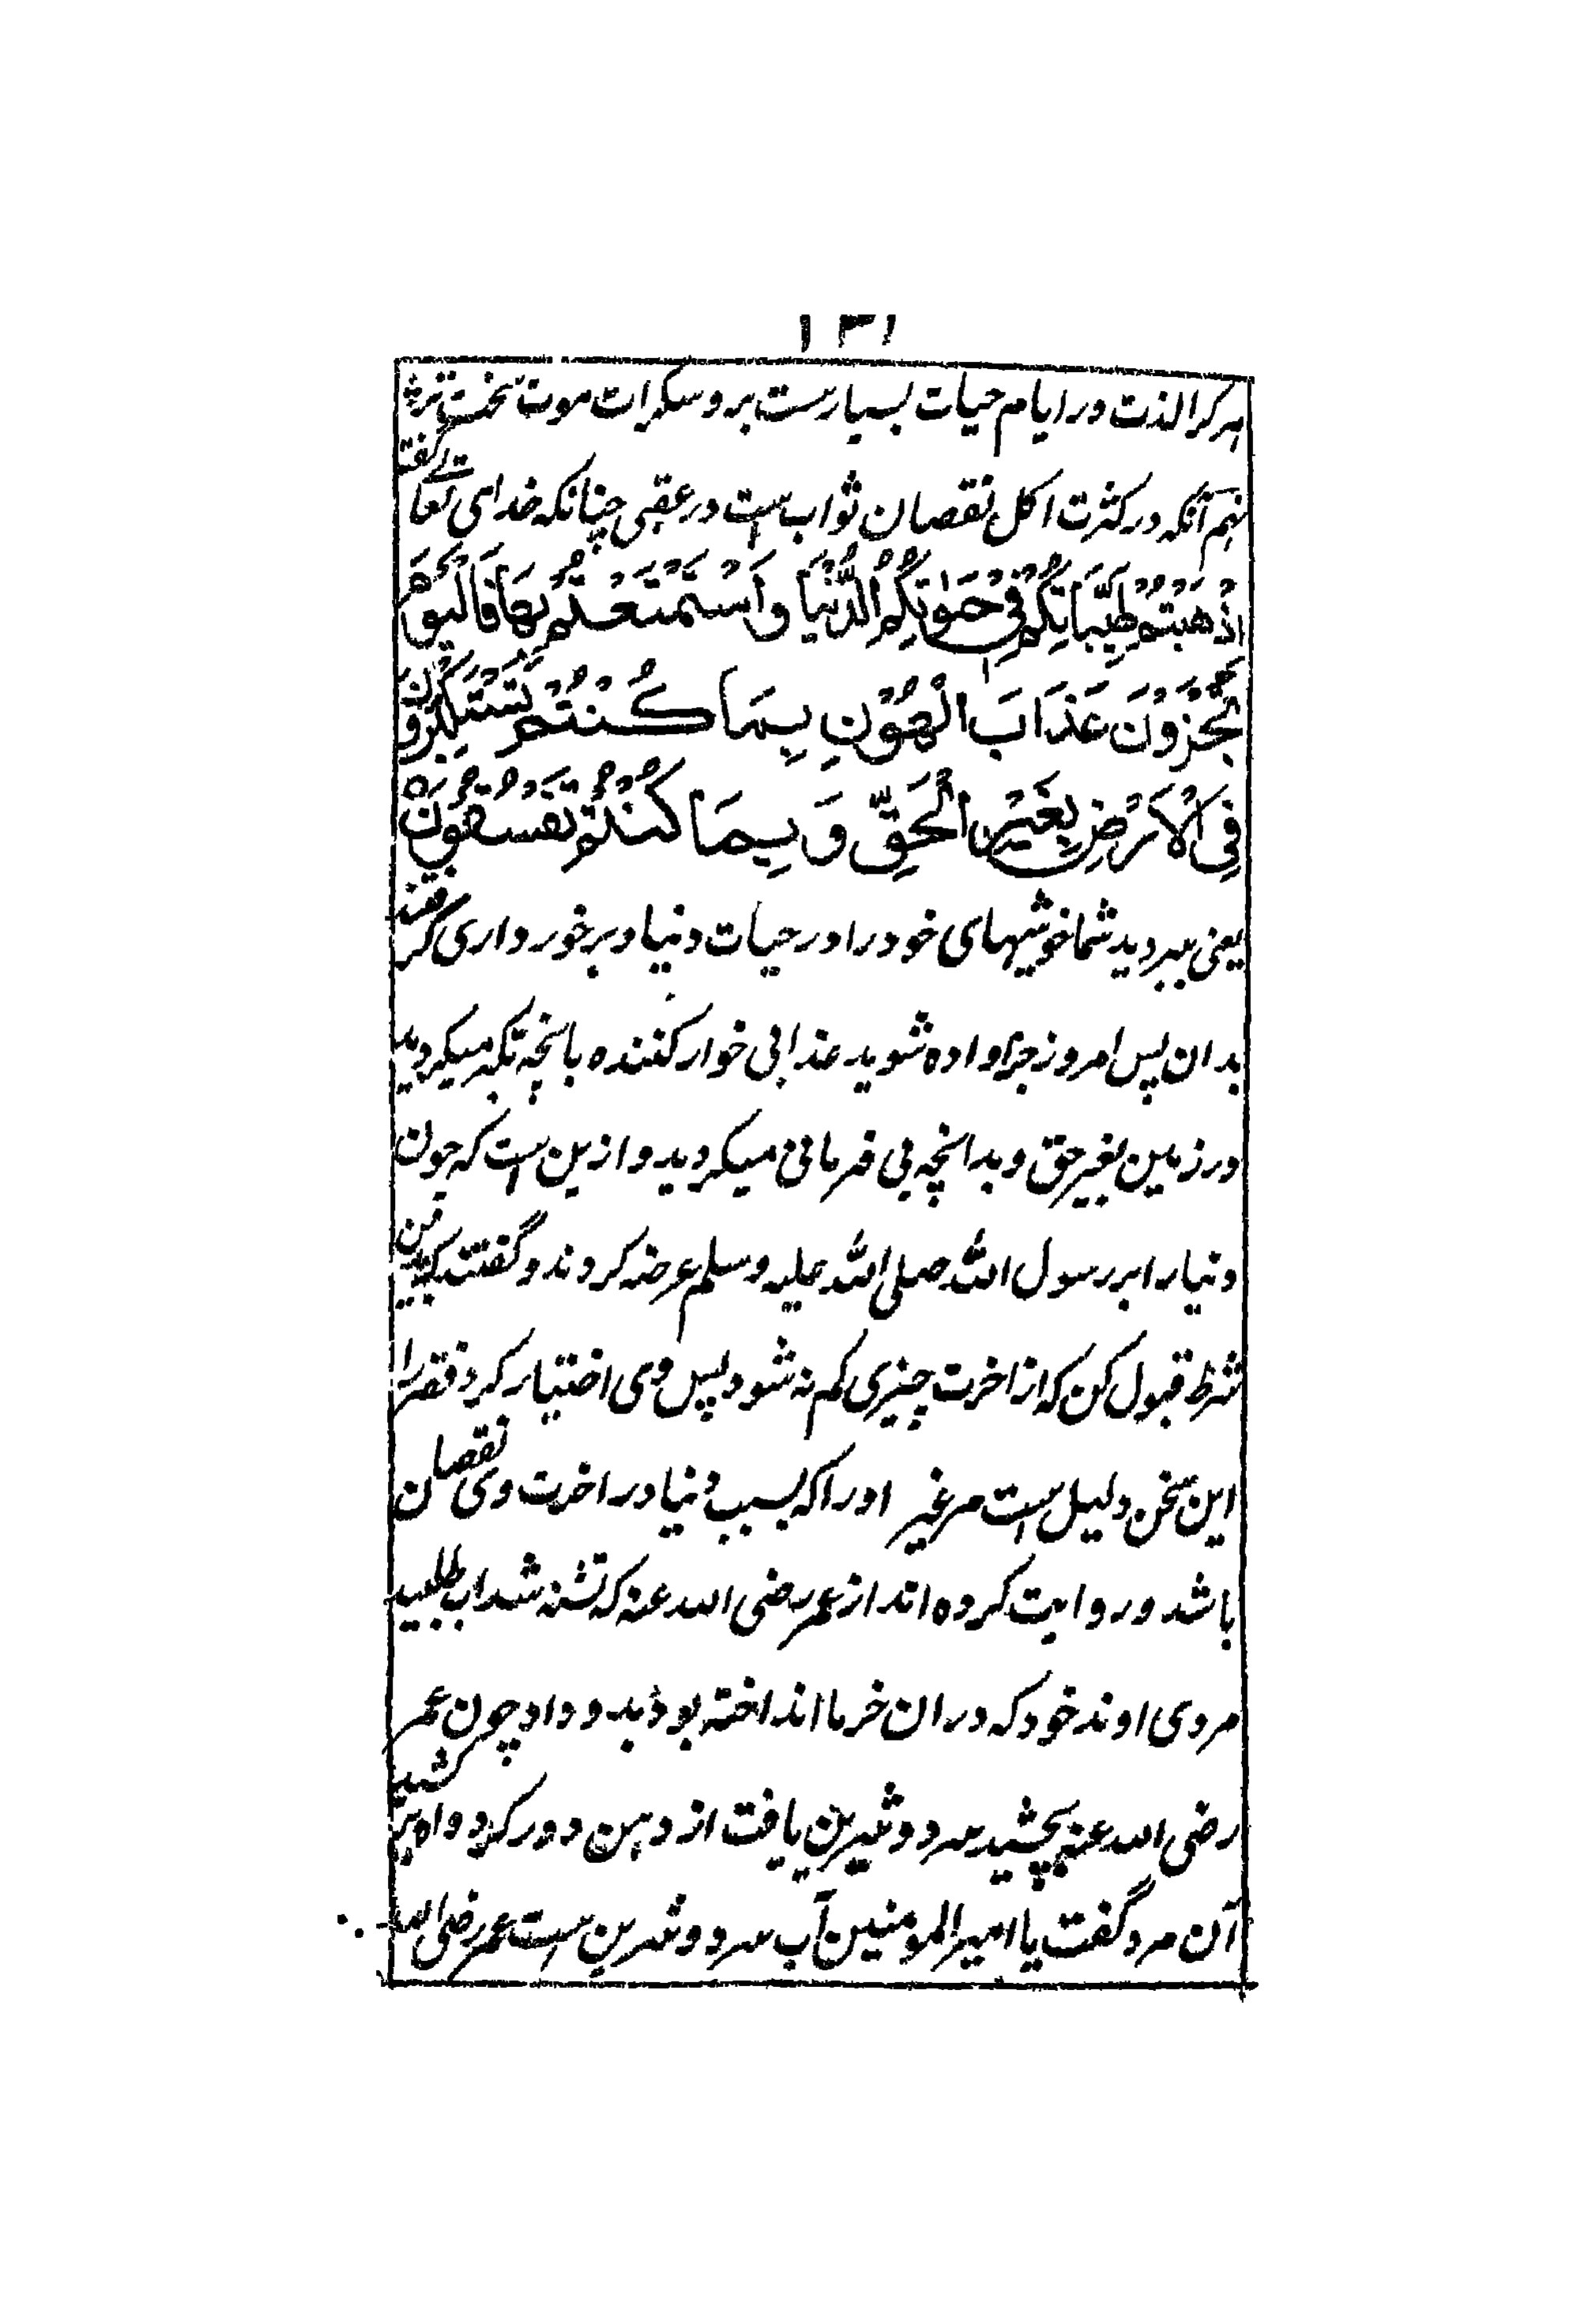 ۱۳۱
هر کرا لذت در ایام حیات بسیارست برو سکرات موت سخت ترست
نهم آنکه در کثرت اکل نقصان ثواب است در عقبی چنانکه خدای تعالے گفته
اَذْهَبْتُمْ طَيِّبَاتِكُمْ فِي حَيٰوتِكُمُ الدُّنْيَا وَاسْتَمْتَعْتُمْ بِهَا فَالْيَوْمَ
تُجْزَوْنَ عَذَابَ الْهُوْنِ بِمَا كُنْتُمْ تَسْتَكْبِرُوْنَ
فِي الْاَرْضِ بِغَيْرِ الْحَقِّ وَ بِمَا كُنْتُمْ تَفْسُقُوْنَ
یعنی ببردید شما خوشیهای خود را در حیات دنیا و برخورداری گرفتید
بدان پس امروز جزا داده شوید عذابی خوار کننده بانچه تکبر میکردید
در زمین بغیر حق و بدانچه بی فرمانی میکردید و ازین است که چون
دنیا را بر رسول الله صلی الله علیه وسلم عرضه کردند و گفتند که بدین
شرط قبول کن که از اخرت چیزی کم نه شود پس وی اختیار کرد فقر را
این سخن دلیل است مر غیر او را که بسبب دنیا در اخرت وی نقصان
باشد و روایت کرده اند از عمر رضی الله عنه که تشنه شد اب طلبید
مردی اوند خود که در ان خرما انداخته بود بدو داد چون عمر
رضی الله عنه بچشید سرد و شیرین یافت از دهن دور کرد و اه بر کشید
آن مرد گفت یا امیر المومنین آب سرد و شیرین است عمر رضی الله